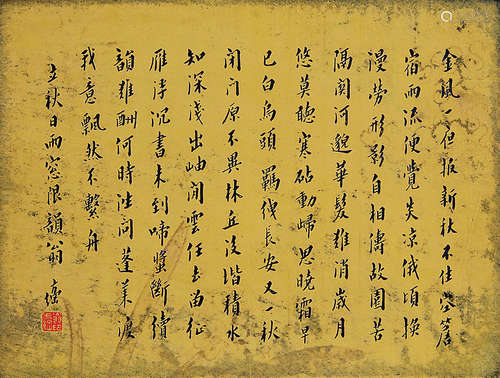 金風一一但振新秋不住空簷
宿雨流便覺失涼俄頃換
漫勞形影自相儔故園苦
隔關河邈華髮難消歲月
悠莫聽寒砧動歸思晚霜早
已白烏頭羈栈長安又一秋
閉门原不異林丘没谐積水
知深淺出岫閒雲任去留征
雁浮沉書未到啼螿斷續
韻難酬何時泩问蓬莱淚
我意飄然不繫舟
立秋日雨窓恨韻翁